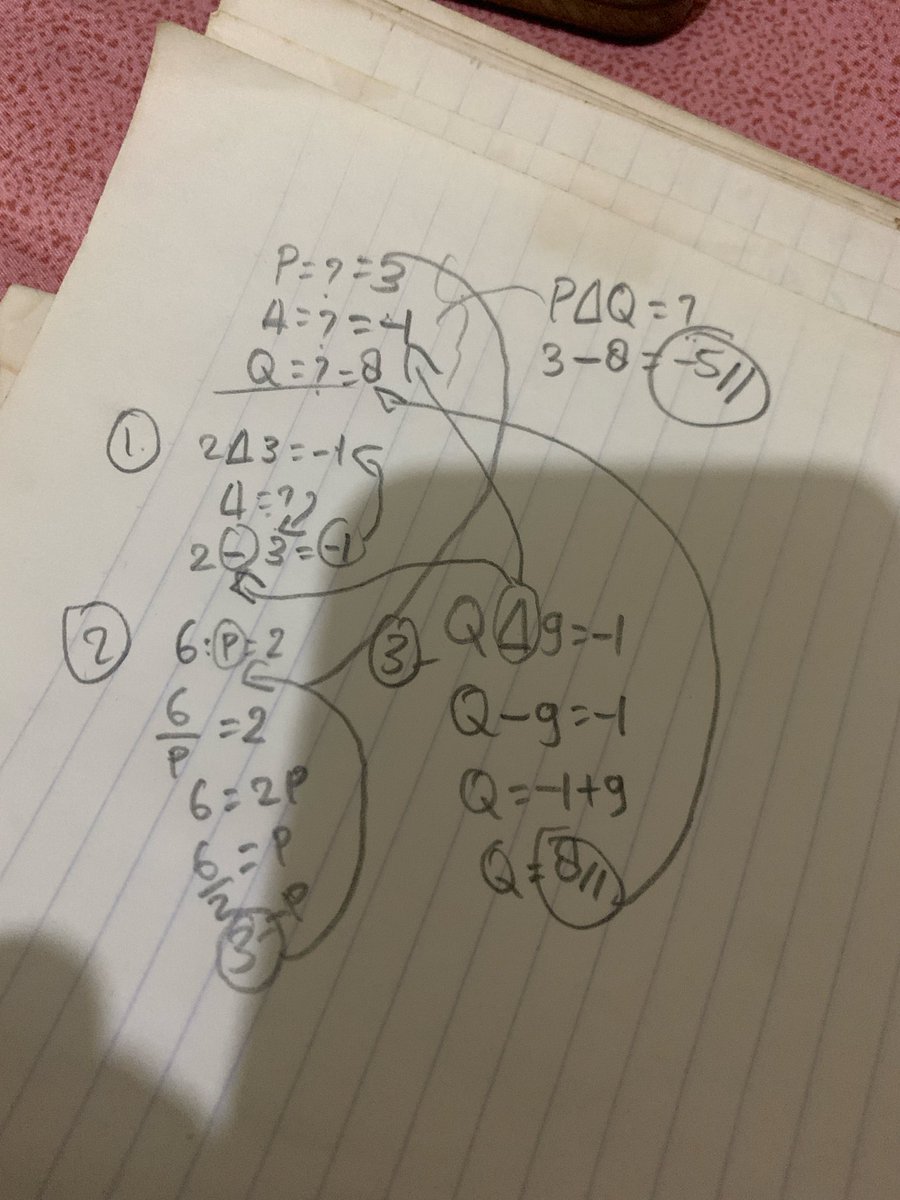 P=?=3
Δ=?=-1
Q=?=8
PΔQ=?
3-8=-5//
1.
2Δ3=-1
Δ=?
2-3=-1
2
6:P=2
6/P=2
6=2P
6/2=P
3=P
3
QΔ9=-1
Q-9=-1
Q=-1+9
Q=8//